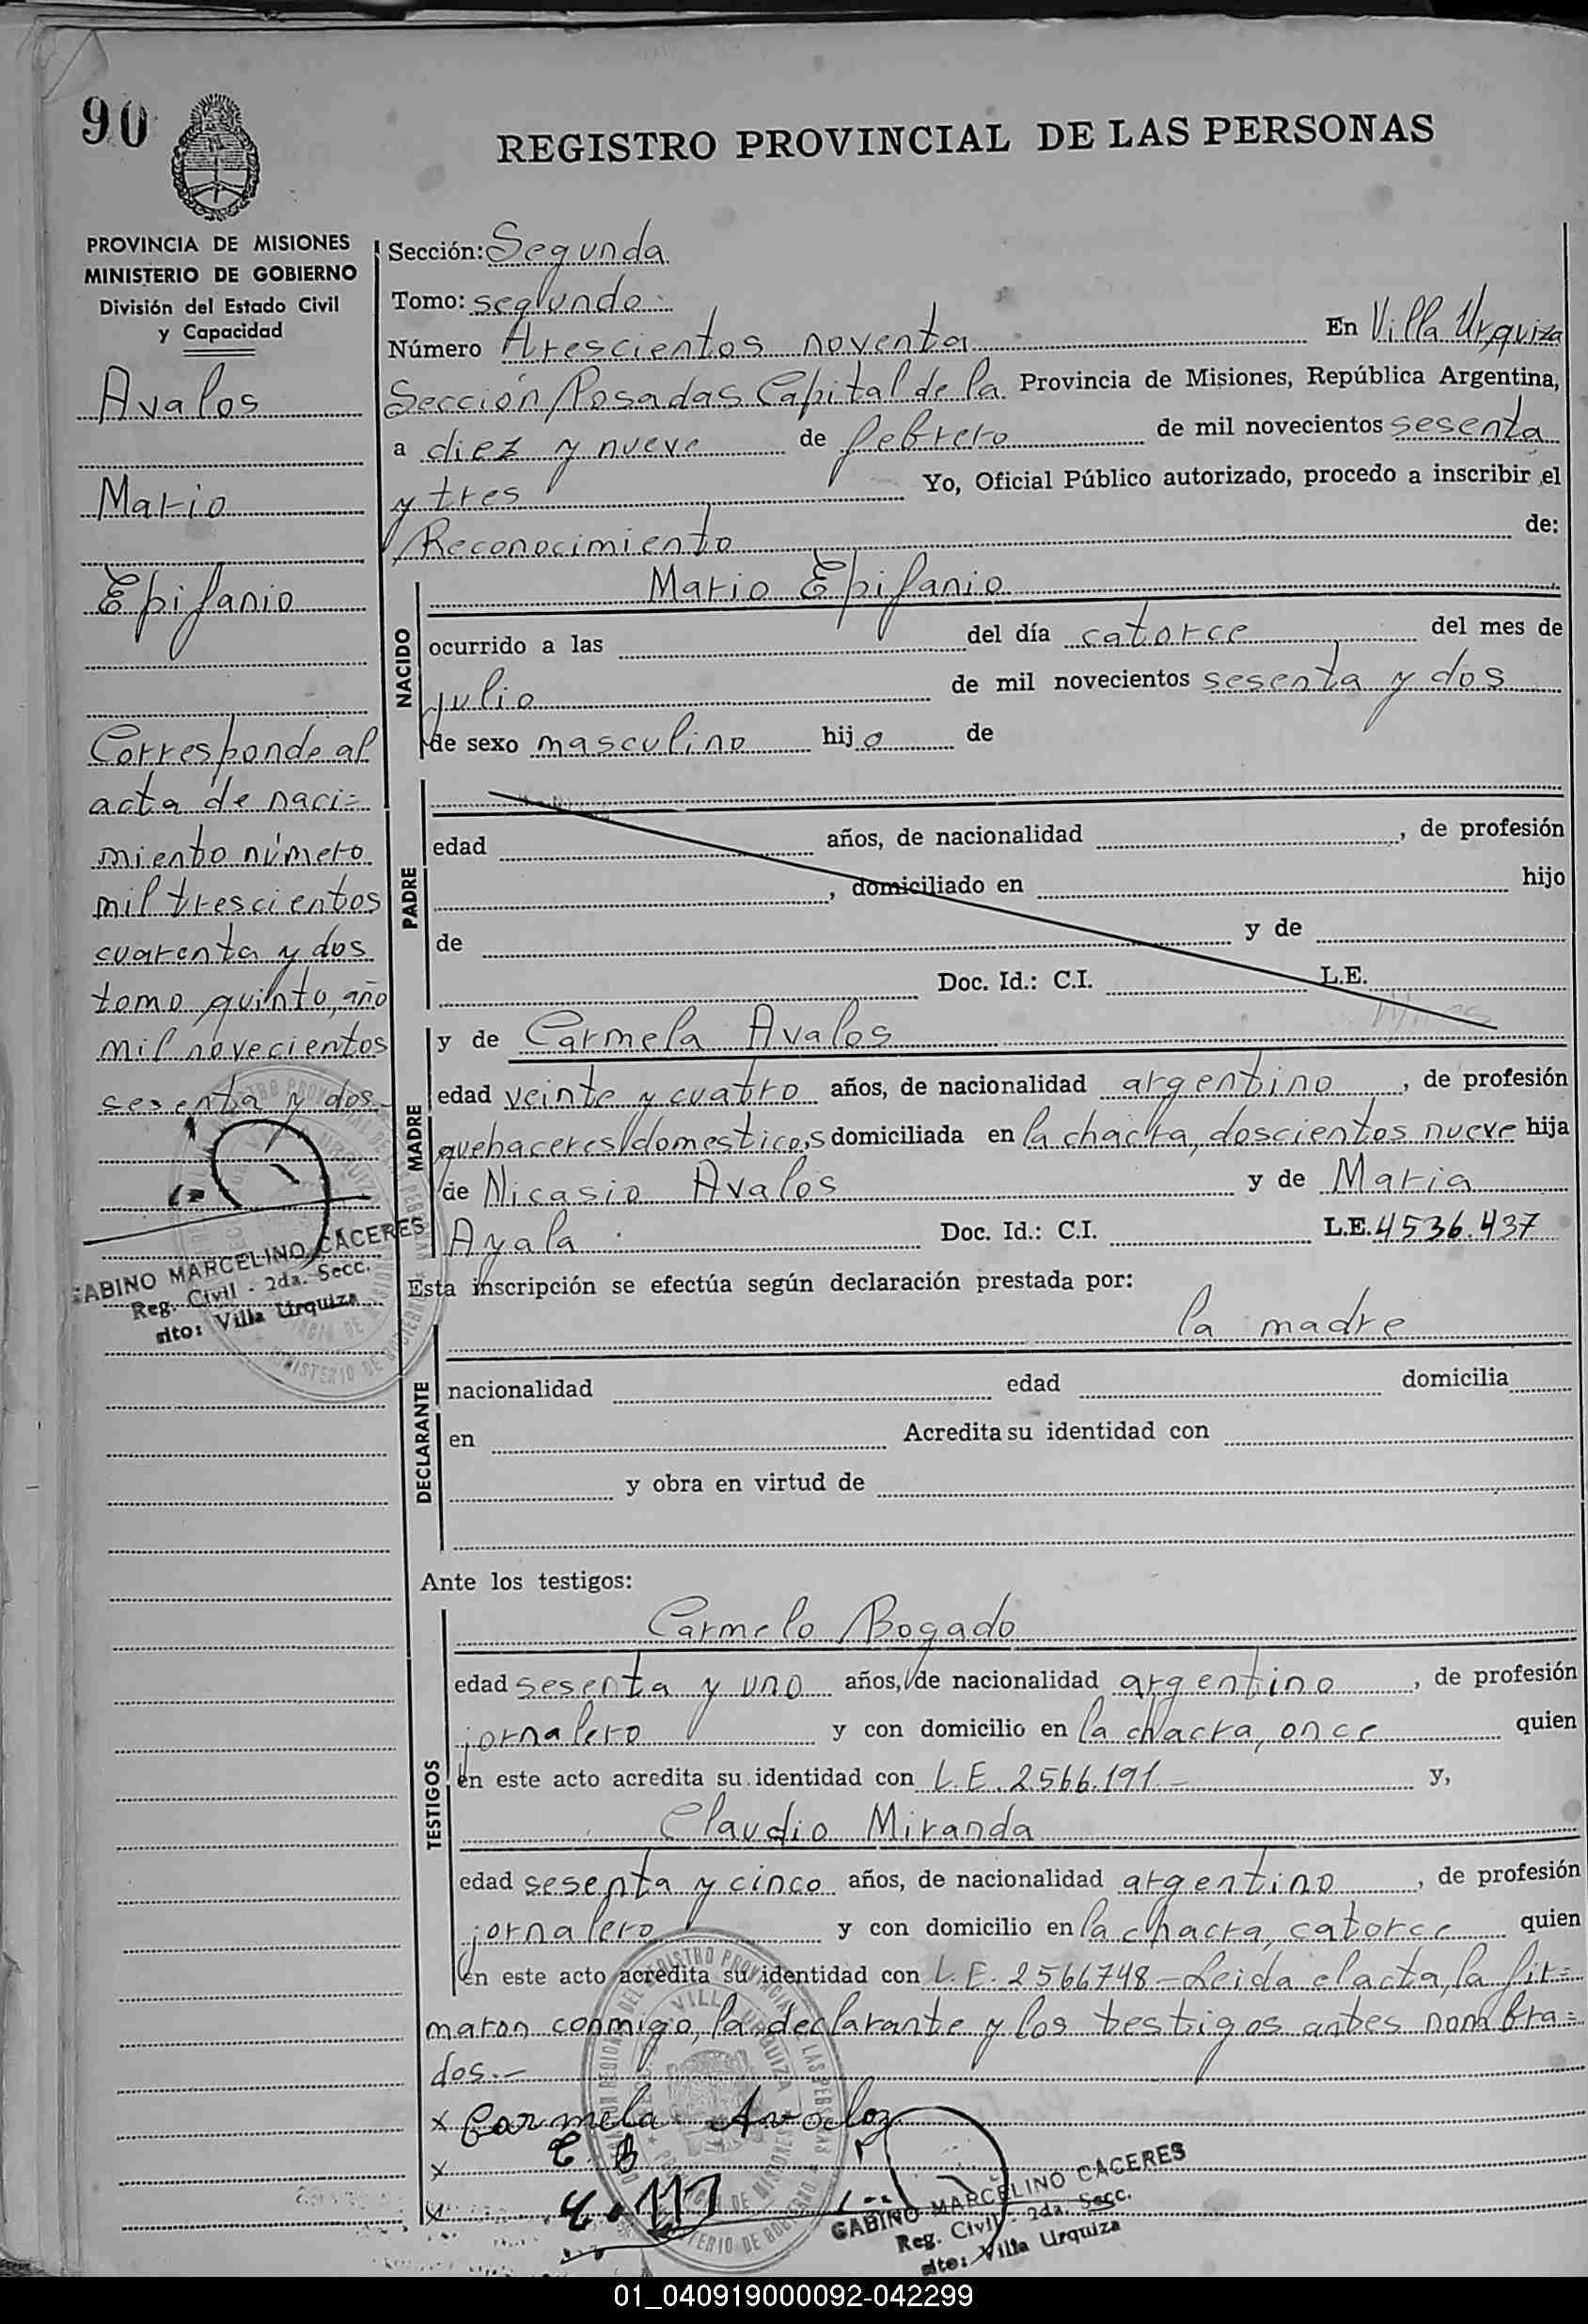 90
REGISTRO PROVINCIAL DE LAS PERSONAS
PROVINCIA DE MISIONES
MINISTERIO DE GOBIERNO
División del Estado Civil
y Capacidad
Avalos
Mario
Epifanio
Corresponde al
acta de naci=
miento número
mil trescientos
cuarenta y dos
tomo quinto, año
mil novecientos
sesenta y dos.-
GABINO MARCELINO CACERES
Reg. Civil - 2da. Secc.
sito: Villa Urquiza
Sección: Segunda
Tomo: segundo.
Número trescientos noventa En Villa Urquiza
Sección Posadas Capital de la Provincia de Misiones, República Argentina,
a diez y nueve de febrero de mil novecientos sesenta
y tres Yo, Oficial Público autorizado, procedo a inscribir el
Reconocimiento de:
NACIDO
Mario Epifanio
ocurrido a las del día catorce del mes de
julio de mil novecientos sesenta y dos
de sexo masculino hijo de
PADRE
edad años, de nacionalidad , de profesión
, domiciliado en hijo
de y de
Doc. Id.: C.I. L.E.
MADRE
y de Carmela Avalos
edad veinte y cuatro años, de nacionalidad argentino, de profesión
quehaceres domesticos domiciliada en la chacra, doscientos nueve hija
de Nicasio Avalos y de Maria
Ayala. Doc. Id.: C.I. L.E. 4536.437
Esta inscripción se efectúa según declaración prestada por:
DECLARANTE
la madre
nacionalidad edad domicilia
en Acredita su identidad con
y obra en virtud de
Ante los testigos:
TESTIGOS
Carmelo Bogado
edad sesenta y uno años, de nacionalidad argentino, de profesión
jornalero y con domicilio en la chacra, once quien
en este acto acredita su identidad con L.E. 2566.191.- y,
Claudio Miranda
edad sesenta y cinco años, de nacionalidad argentino, de profesión
jornalero y con domicilio en la chacra, catorce quien
en este acto acredita su identidad con L.E. 2566748 - Leida el acta, la fir=
maron conmigo, la declarante y los testigos antes nombra=
dos.-
x Carmela Avaloz
x C. B
x
GABINO MARCELINO CACERES
Reg. Civil - 2da. Secc.
sito: Villa Urquiza
01_040919000092-042299